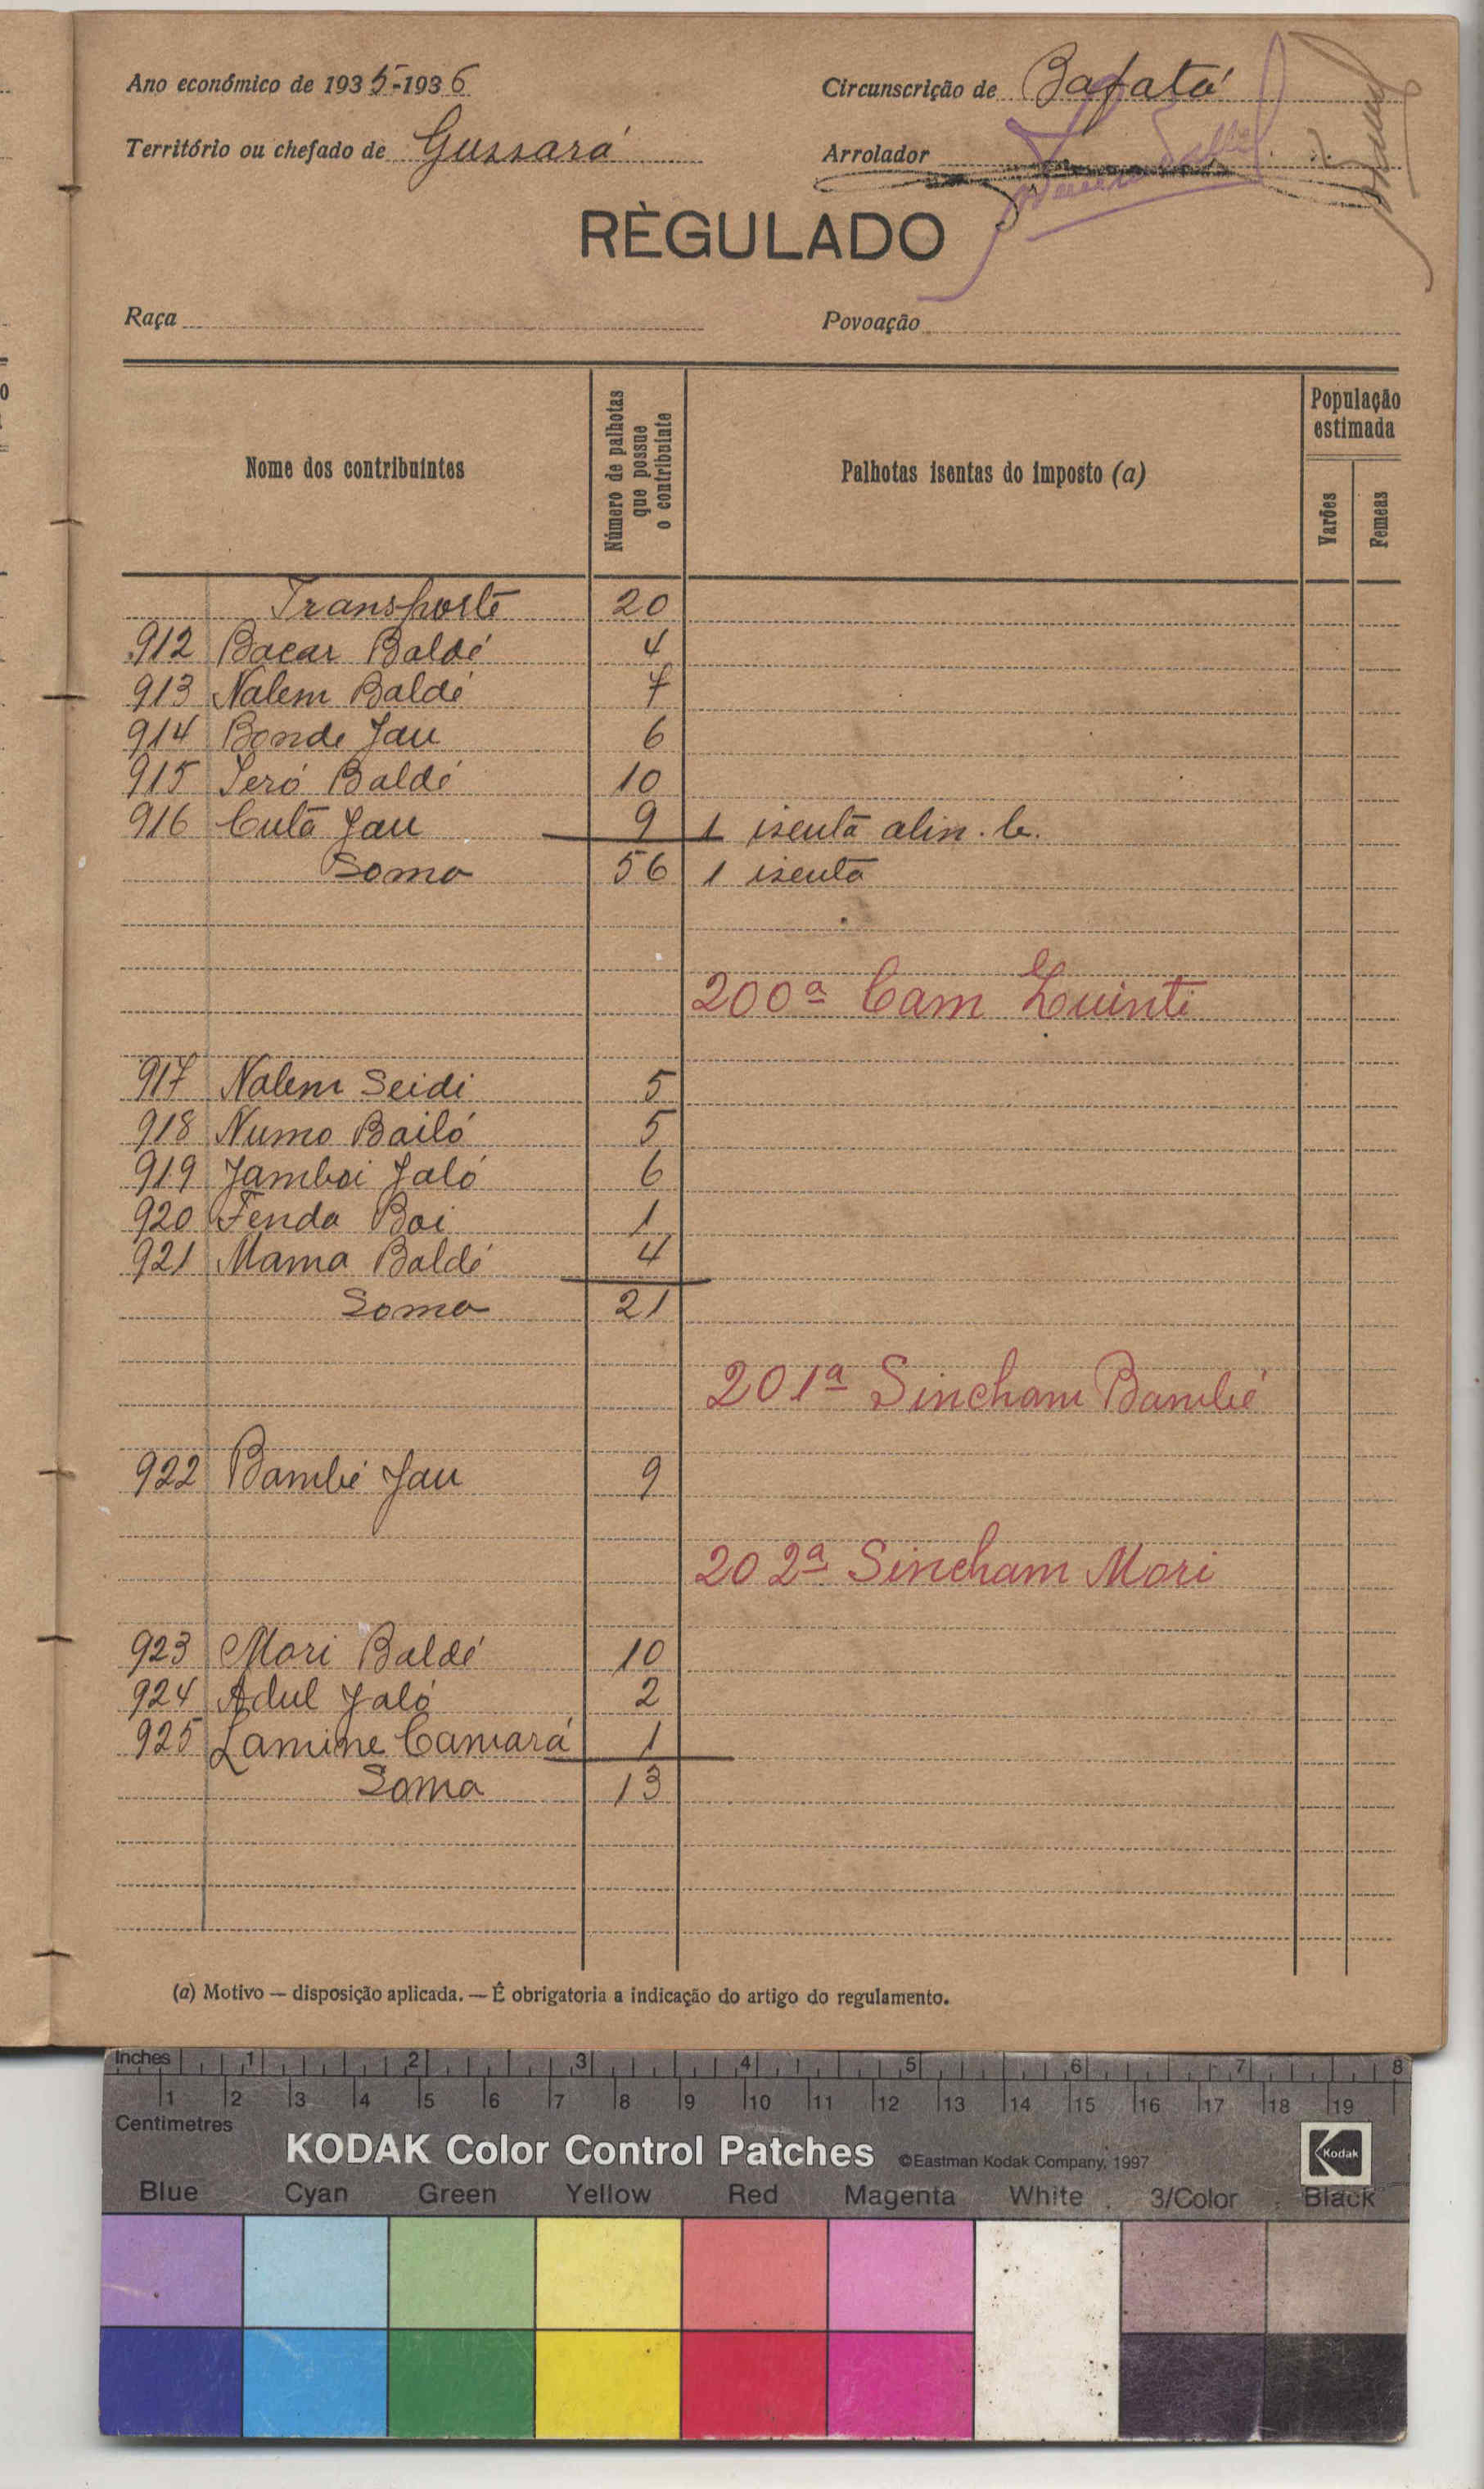 Ano económico de 1935-1936
Circunscrição de Bafatá
Território ou chefado de Gussará
Arrolador
RÈGULADO
Raça
Povoação
Nome dos contribuintes
Número de palhotas que possue o contribuinte
Palhotas isentas do imposto (a)
População estimada
Varões
Femeas
Transporte 20
912 Bacar Baldé 4
913 Nalem Baldé 7
914 Bonde Jau 6
915 Seró Baldé 10
916 Cutā Jau 9 1 isenta alin. b.
Soma 56 1 isenta
200ª Cam Quinti
917 Nalem Seidi 5
918 Numo Bailó 5
919 Jamboi Jaló 6
920 Fenda Boi 1
921 Mama Baldé 4
Soma 21
201ª Sincham Bambé
922 Bambé Jau 9
202ª Sincham Mori
923 Mori Baldé 10
924 Adul Jaló 2
925 Lamine Camará 1
Soma 13
(a) Motivo — disposição aplicada. — É obrigatoria a indicação do artigo do regulamento.
Inches 1 2 3 4 5 6 7 8
1 2 3 4 5 6 7 8 9 10 11 12 13 14 15 16 17 18 19
Centimetres
KODAK Color Control Patches ©Eastman Kodak Company, 1997 Kodak
Blue Cyan Green Yellow Red Magenta White 3/Color Black